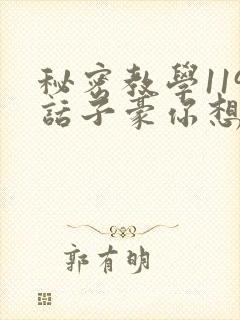 秘密教學119
話子豪你想
郭有明